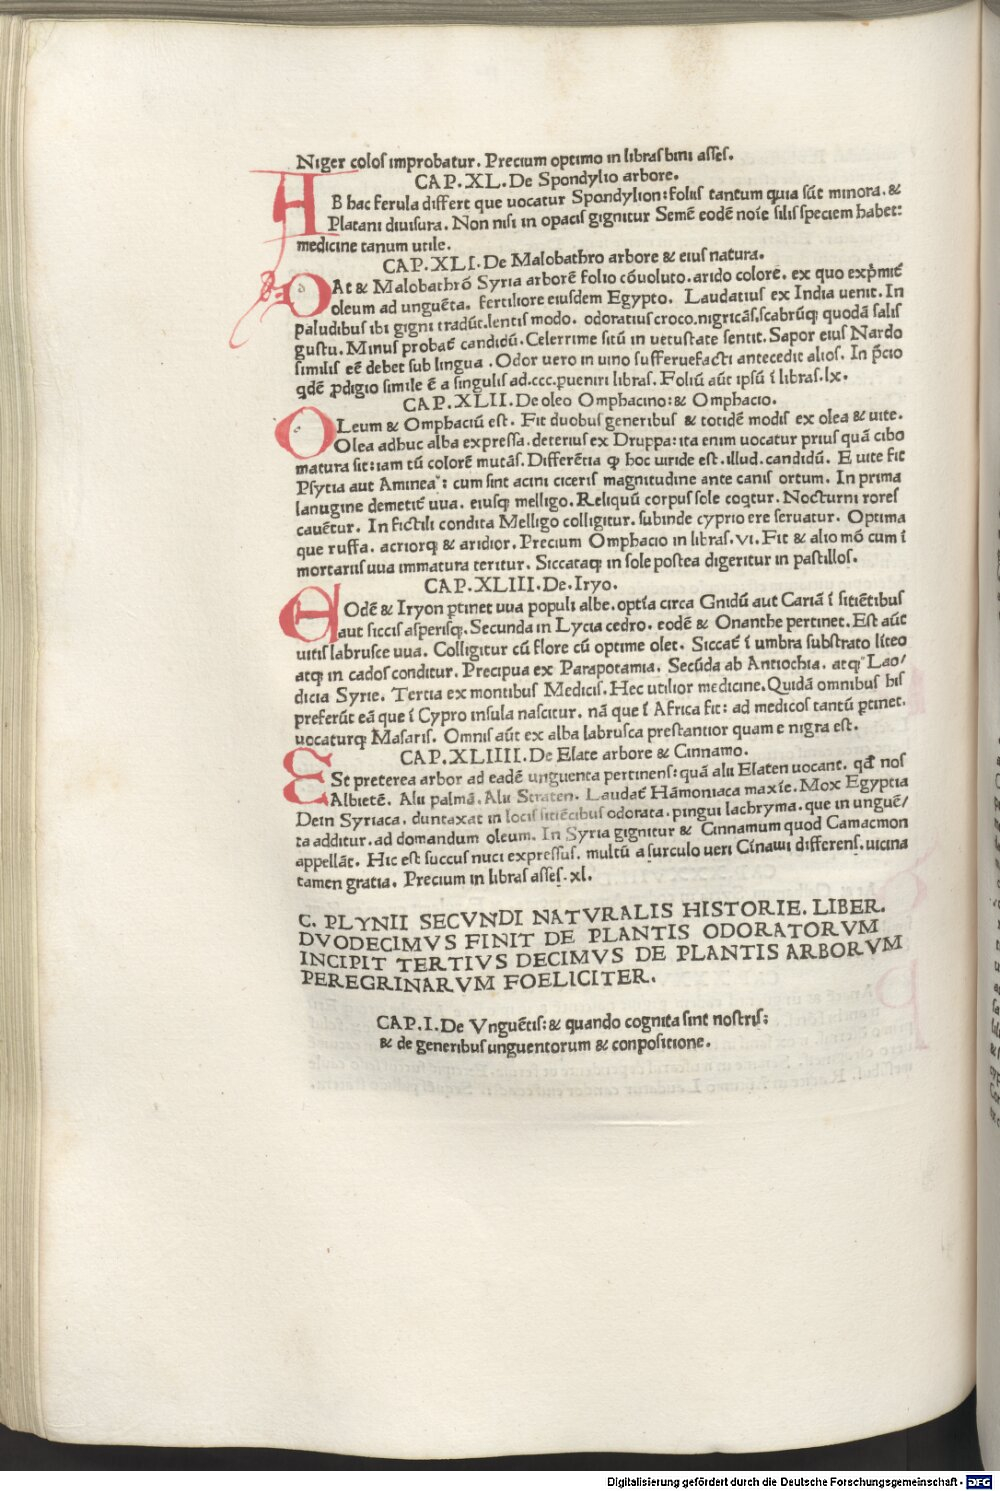 Niger coloſ improbatur. Precium optimo in libras bini aſſeſ.
CAP.XL. De Spondylio arbore.
AB hac ferula differt que uocatur Spondylion: foliiſ tantum quia sūt minora. &
Platani diuisura. Non niſi in opaciſ gignitur Semē eodē noīe ſiliſ ſpeciem habet:
medicine tanum utile.
CAP.XLI. De Malobathro arbore & eiuſ natura.
DAt & Malobathrō Syria arborē folio cōuoluto. arido colorē. ex quo exp̄mit᷑
oleum ad unguēta. fertiliore eiuſdem Egypto. Laudatiuſ ex India uenit. In
paludibuſ ibi gigni tradūt. lentiſ modo. odoratiuſ croco. nigricāſ. ſcabrūqꝫ quodā ſaliſ
guſtu. Minuſ probat᷑ candidū. Celerrime ſitū in uetuſtate ſentit. Sapor eiuſ Nardo
ſimiliſ eē debet ſub lingua. Odor uero in uino ſufferuefacti antecedit alioſ. In p̄cio
qdē ꝓdigio ſimile ē a ſinguliſ ad .ccc. ꝑueniri libraſ. Foliū aūt ipſū ī libraſ .lx.
CAP.XLII. De oleo Omphacino: & Omphacio.
OLeum & Omphaciū eſt. Fit duobuſ generibuſ & totidē modiſ ex olea & uite.
Olea adhuc alba expreſſa. deteriuſ ex Druppa: ita enim uocatur priuſ quā cibo
matura ſit: iam tū colorē mutāſ. Differētia ꝙ hoc uiride eſt. illud. candidū. E uite fit
Pſytia aut Aminea: cum ſint acini ciceriſ magnitudine ante caniſ ortum. In prima
lanugine demetit᷑ uua. eiuſqꝫ melligo. Reliquū corpuſ ſole coqtur. Nocturni roreſ
cauētur. In fictili condita Melligo colligitur. ſubinde cyprio ere ſeruatur. Optima
que ruffa. acriorqꝫ & aridior. Precium Omphacio in libraſ .vi. Fit & alio mō cum ī
mortariiſ uua immatura teritur. Siccataqꝫ in ſole poſtea digeritur in paſtilloſ.
CAP.XLIII. De. Iryo.
EOdē & Iryon ꝑtinet uua populi albe. optīa circa Gnidū aut Cariā ī ſitiētibuſ
aut ſicciſ aſperiſqꝫ. Secunda in Lycia cedro. eodē & Onanthe pertinet. Eſt aūt
uitiſ labruſce uua. Colligitur cū flore cū optime olet. Siccat᷑ ī umbra ſubſtrato līteo
atqꝫ in cadoſ conditur. Precipua ex Parapotamia. Secūda ab Antiochia. atqꝫ Lao/
dicia Syrie. Tertia ex montibuſ Mediciſ. Hec utilior medicine. Quidā omnibuſ hiſ
preferūt eā que ī Cypro inſula naſcitur. nā que ī Africa fit: ad medicoſ tantū ꝑtinet.
uocaturqꝫ Maſariſ. Omniſ aūt ex alba labruſca preſtantior quam e nigra eſt.
CAP.XLIIII. De Elate arbore & Cinnamo.
ESt preterea arbor ad eadē unguenta pertinenſ: quā alii Elaten uocant. qđ noſ
Albietē. Alii palmā. Alii Straten. Laudat᷑ Hāmoniaca maxīe. Mox Egyptia
Dein Syriaca. duntaxat in lociſ ſitiētibuſ odorata. pingui lachryma. que in unguē/
ta additur. ad domandum oleum. In Syria gignitur & Cinnamum quod Camacmon
appellāt. Hic eſt ſuccuſ nuci expreſſuſ. multū a ſurculo ueri Cīnami differenſ. uicina
tamen gratia. Precium in libraſ aſſeſ .xl.
C. PLYNII SECVNDI NATVRALIS HISTORIE. LIBER.
DVODECIMVS FINIT DE PLANTIS ODORATORVM
INCIPIT TERTIVS DECIMVS DE PLANTIS ARBORVM
PEREGRINARVM FOELICITER.
CAP.I. De Vnguētiſ: & quando cognita ſint noſtriſ;
& de generibuſ unguentorum & conpoſitione.
Digitalisierung gefördert durch die Deutsche Forschungsgemeinschaft - DFG